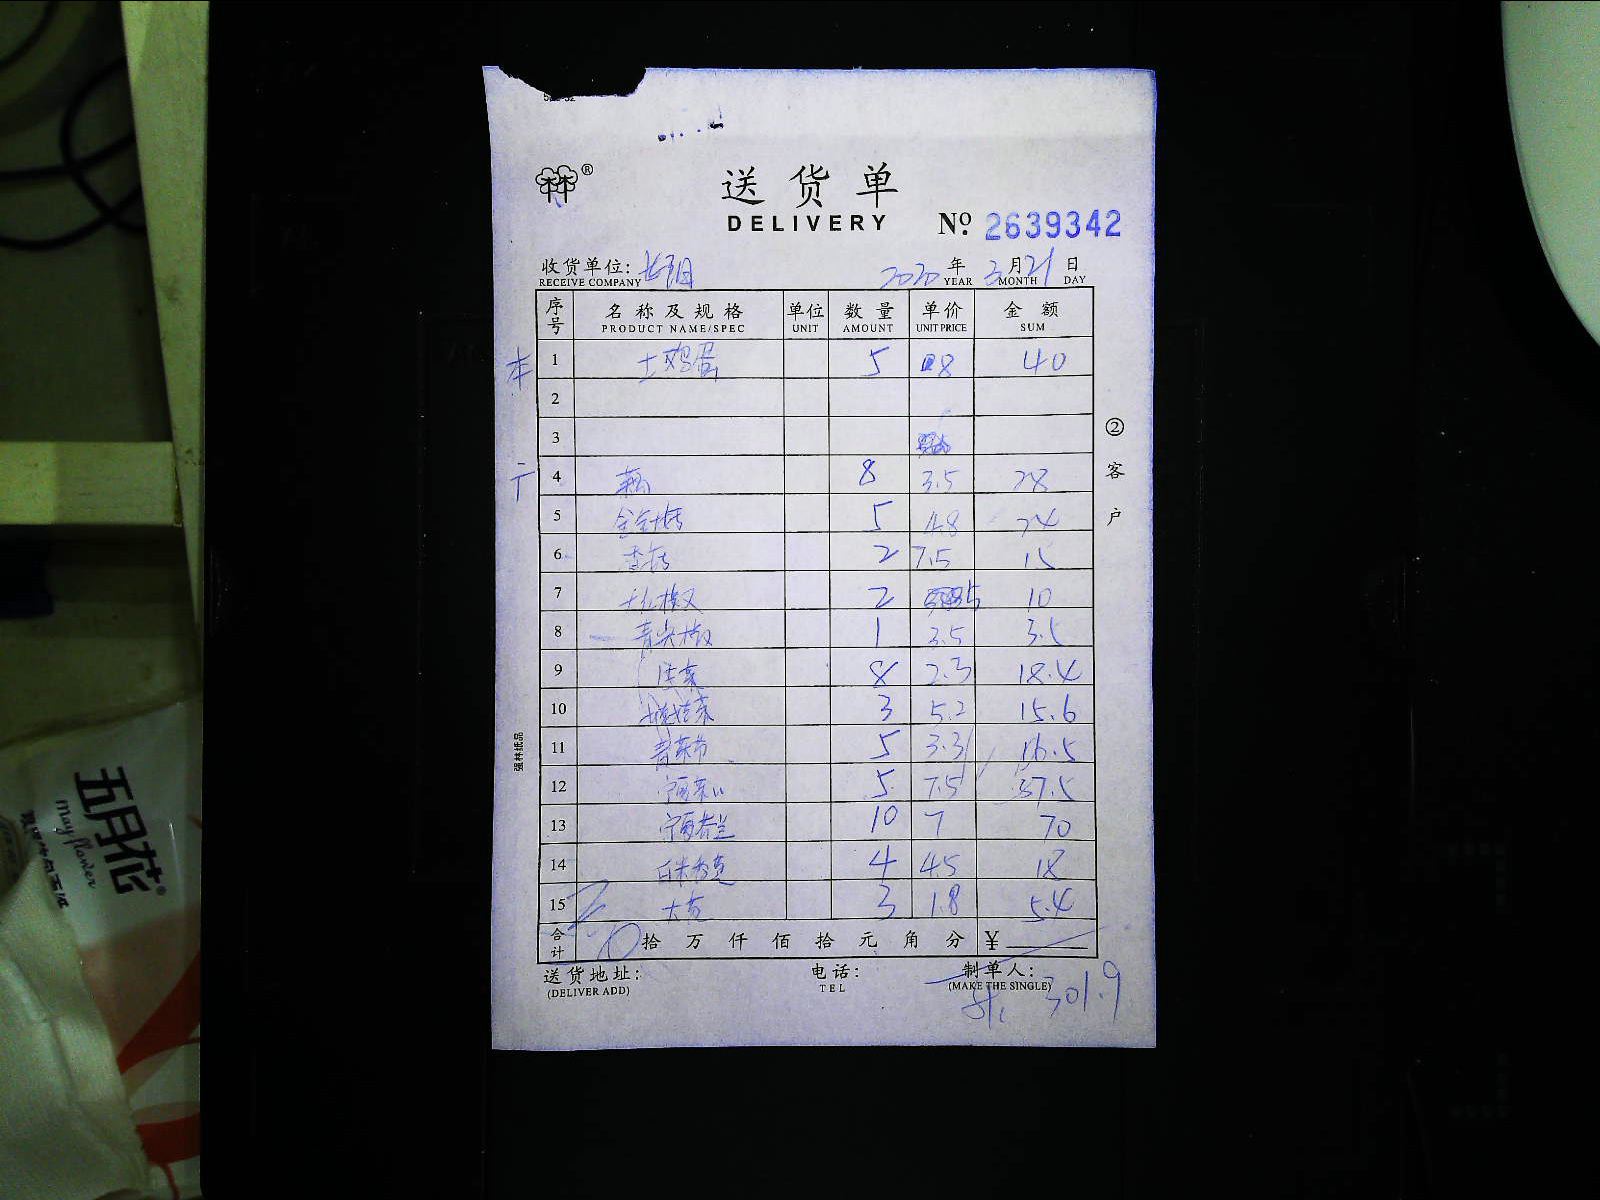 送货单
DELIVERY
№ 2639342
收货单位: 2020年3月21日
RECEIVE COMPANY YEAR MONTH DAY
序号 名称及规格 单位 数量 单价 金额
PRODUCT NAME/SPEC UNIT AMOUNT UNIT PRICE SUM
本 1 土鸡蛋 5 8 40
2
3
4 藕 8 3.5 28
5 金针菇 5 4.8 24
6 香菇 2 7.5 15
7 2 5 10
8 青尖椒 1 3.5 3.5
9 8 2.3 18.4
10 3 5.2 15.6
11 5 3.3 16.5
12 宁夏菜心 5 7.5 37.5
13 宁夏芥兰 10 7 70
14 4 4.5 18
15 3 1.8 5.4
合计 拾万仟佰拾元角分 ¥
送货地址: 电话: 制单人:
(DELIVER ADD) TEL (MAKE THE SINGLE)
301.9
②客户
强林纸品
五月花
May flower